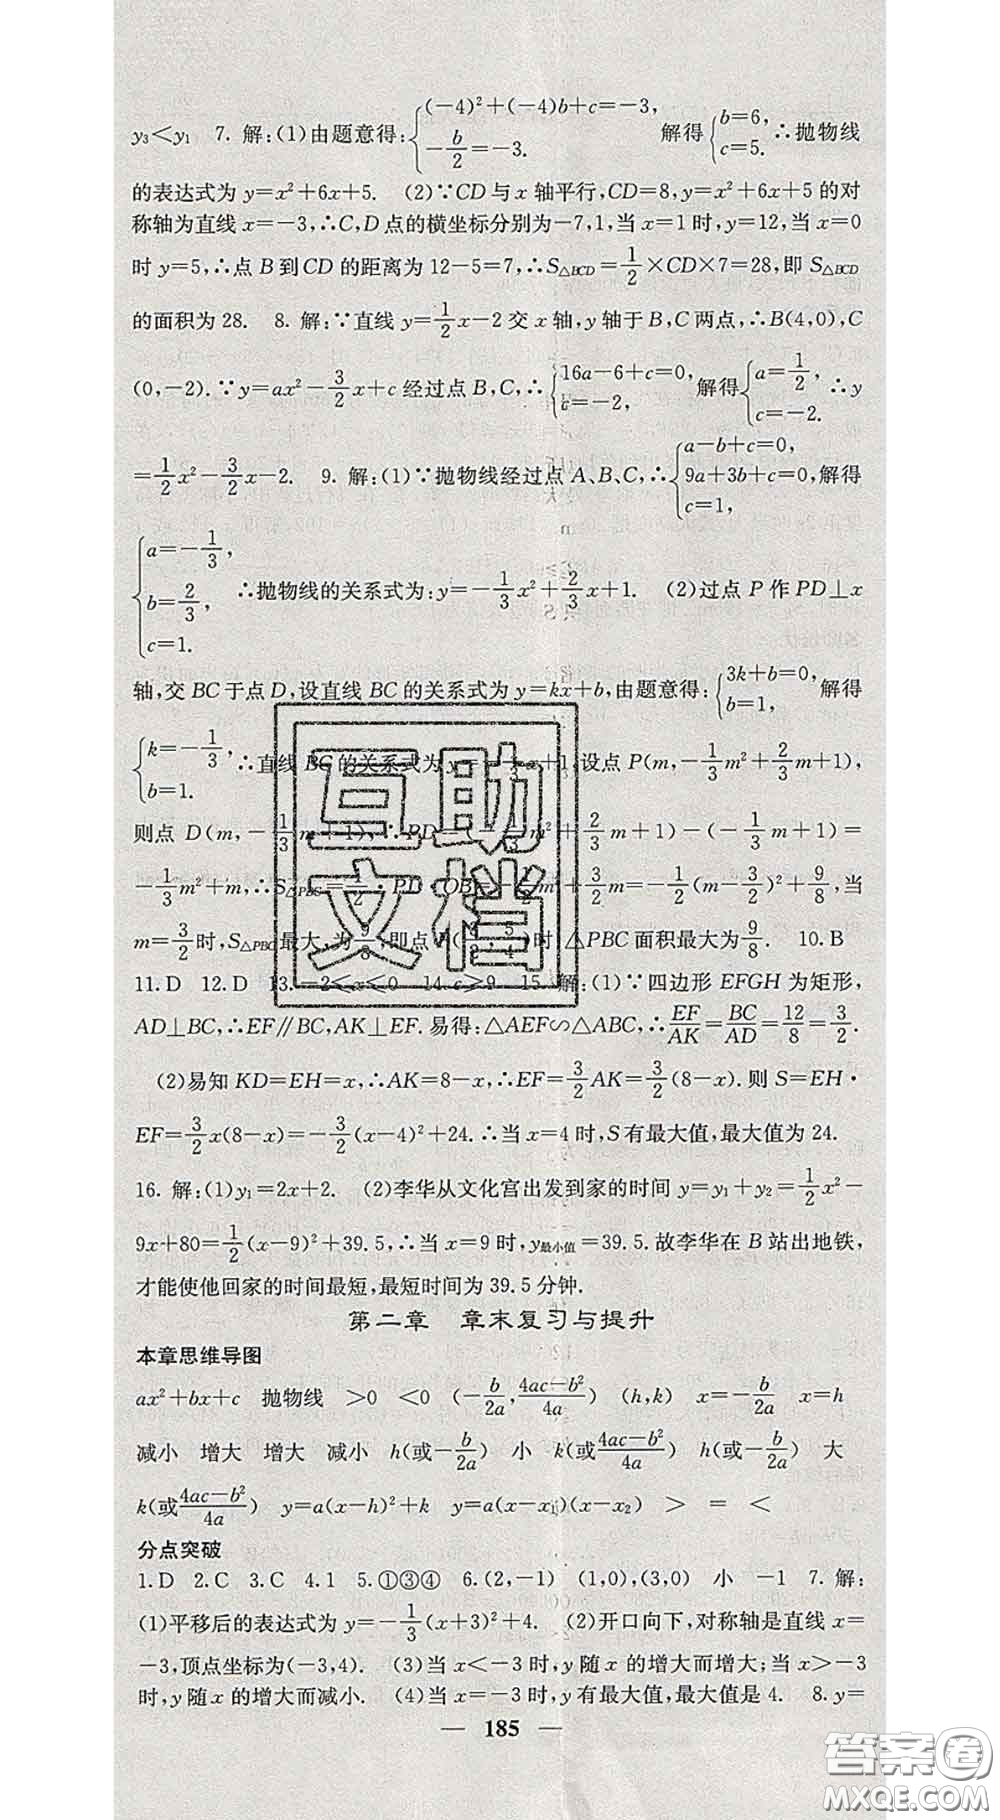 y₃<y₁　7. 解:(1)由题意得:{(-4)²+(-4)b+c=-3, -b/2=-3. 解得{b=6, c=5. ∴抛物线
的表达式为 y=x²+6x+5.　(2)∵CD 与 x 轴平行,CD=8,y=x²+6x+5 的对
称轴为直线 x=-3,∴C,D 点的横坐标分别为-7,1,当 x=1 时,y=12,当 x=0
时 y=5,∴点 B 到 CD 的距离为 12-5=7,∴S△BCD=1/2×CD×7=28,即 S△BCD
的面积为 28.　8. 解:∵直线 y=1/2x-2 交 x 轴,y 轴于 B,C 两点,∴B(4,0),C
(0,-2).∵y=ax²-3/2x+c 经过点 B,C,∴{16a-6+c=0, c=-2, 解得{a=1/2, c=-2. ∴y
=1/2x²-3/2x-2.　9. 解:(1)∵抛物线经过点 A、B、C,∴{a-b+c=0, 9a+3b+c=0, c=1, 解得
{a=-1/3, b=2/3, c=1. ∴抛物线的关系式为:y=-1/3x²+2/3x+1.　(2)过点 P 作 PD⊥x
轴,交 BC 于点 D,设直线 BC 的关系式为 y=kx+b,由题意得:{3k+b=0, b=1, 解得
{k=-1/3, b=1. ∴直线 BC 的关系式为 y=-1/3x+1,设点 P(m,-1/3m²+2/3m+1),
则点 D(m,-1/3m+1),∴PD=(-1/3m²+2/3m+1)-(-1/3m+1)=
-1/3m²+m,∴S△PBC=1/2·PD·OB=-1/2m²+3/2m=-1/2(m-3/2)²+9/8,当
m=3/2时,S△PBC最大,为9/8,即点P(3/2,5/4)时,△PBC 面积最大为9/8.　10. B
11. D　12. D　13. -2≤x≤0　14. c>9　15. 解:(1)∵四边形 EFGH 为矩形,
AD⊥BC,∴EF∥BC,AK⊥EF.易得:△AEF∽△ABC,∴EF/AK=BC/AD=12/8=3/2.
(2)易知 KD=EH=x,∴AK=8-x,∴EF=3/2AK=3/2(8-x).则 S=EH·
EF=3/2x(8-x)=-3/2(x-4)²+24.∴当 x=4 时,S 有最大值,最大值为 24.
16. 解:(1)y₁=2x+2.　(2)李华从文化宫出发到家的时间 y=y₁+y₂=1/2x²-
9x+80=1/2(x-9)²+39.5,∴当 x=9 时,y最小值=39.5.故李华在 B 站出地铁,
才能使他回家的时间最短,最短时间为 39.5 分钟.
第二章　章末复习与提升
本章思维导图
ax²+bx+c　抛物线　>0　<0　(-b/2a,4ac-b²/4a)　(h,k)　x=-b/2a　x=h
减小　增大　增大　减小　h(或-b/2a)　小　k(或4ac-b²/4a)　h(或-b/2a)　大
k(或4ac-b²/4a)　y=a(x-h)²+k　y=a(x-x₁)(x-x₂)　>　=　<
分点突破
1.D　2.C　3.C　4.1　5.①③④　6.(2,-1)　(1,0),(3,0)　小　-1　7. 解:
(1)平移后的表达式为 y=-1/3(x+3)²+4.　(2)开口向下,对称轴是直线 x=
-3,顶点坐标为(-3,4).　(3)当 x<-3 时,y 随 x 的增大而增大;当 x>-3
时,y 随 x 的增大而减小.　(4)当 x=-3 时,y 有最大值,最大值是 4.　8. y=
— 185 —
互助
文档
答案卷
MXQE.COM